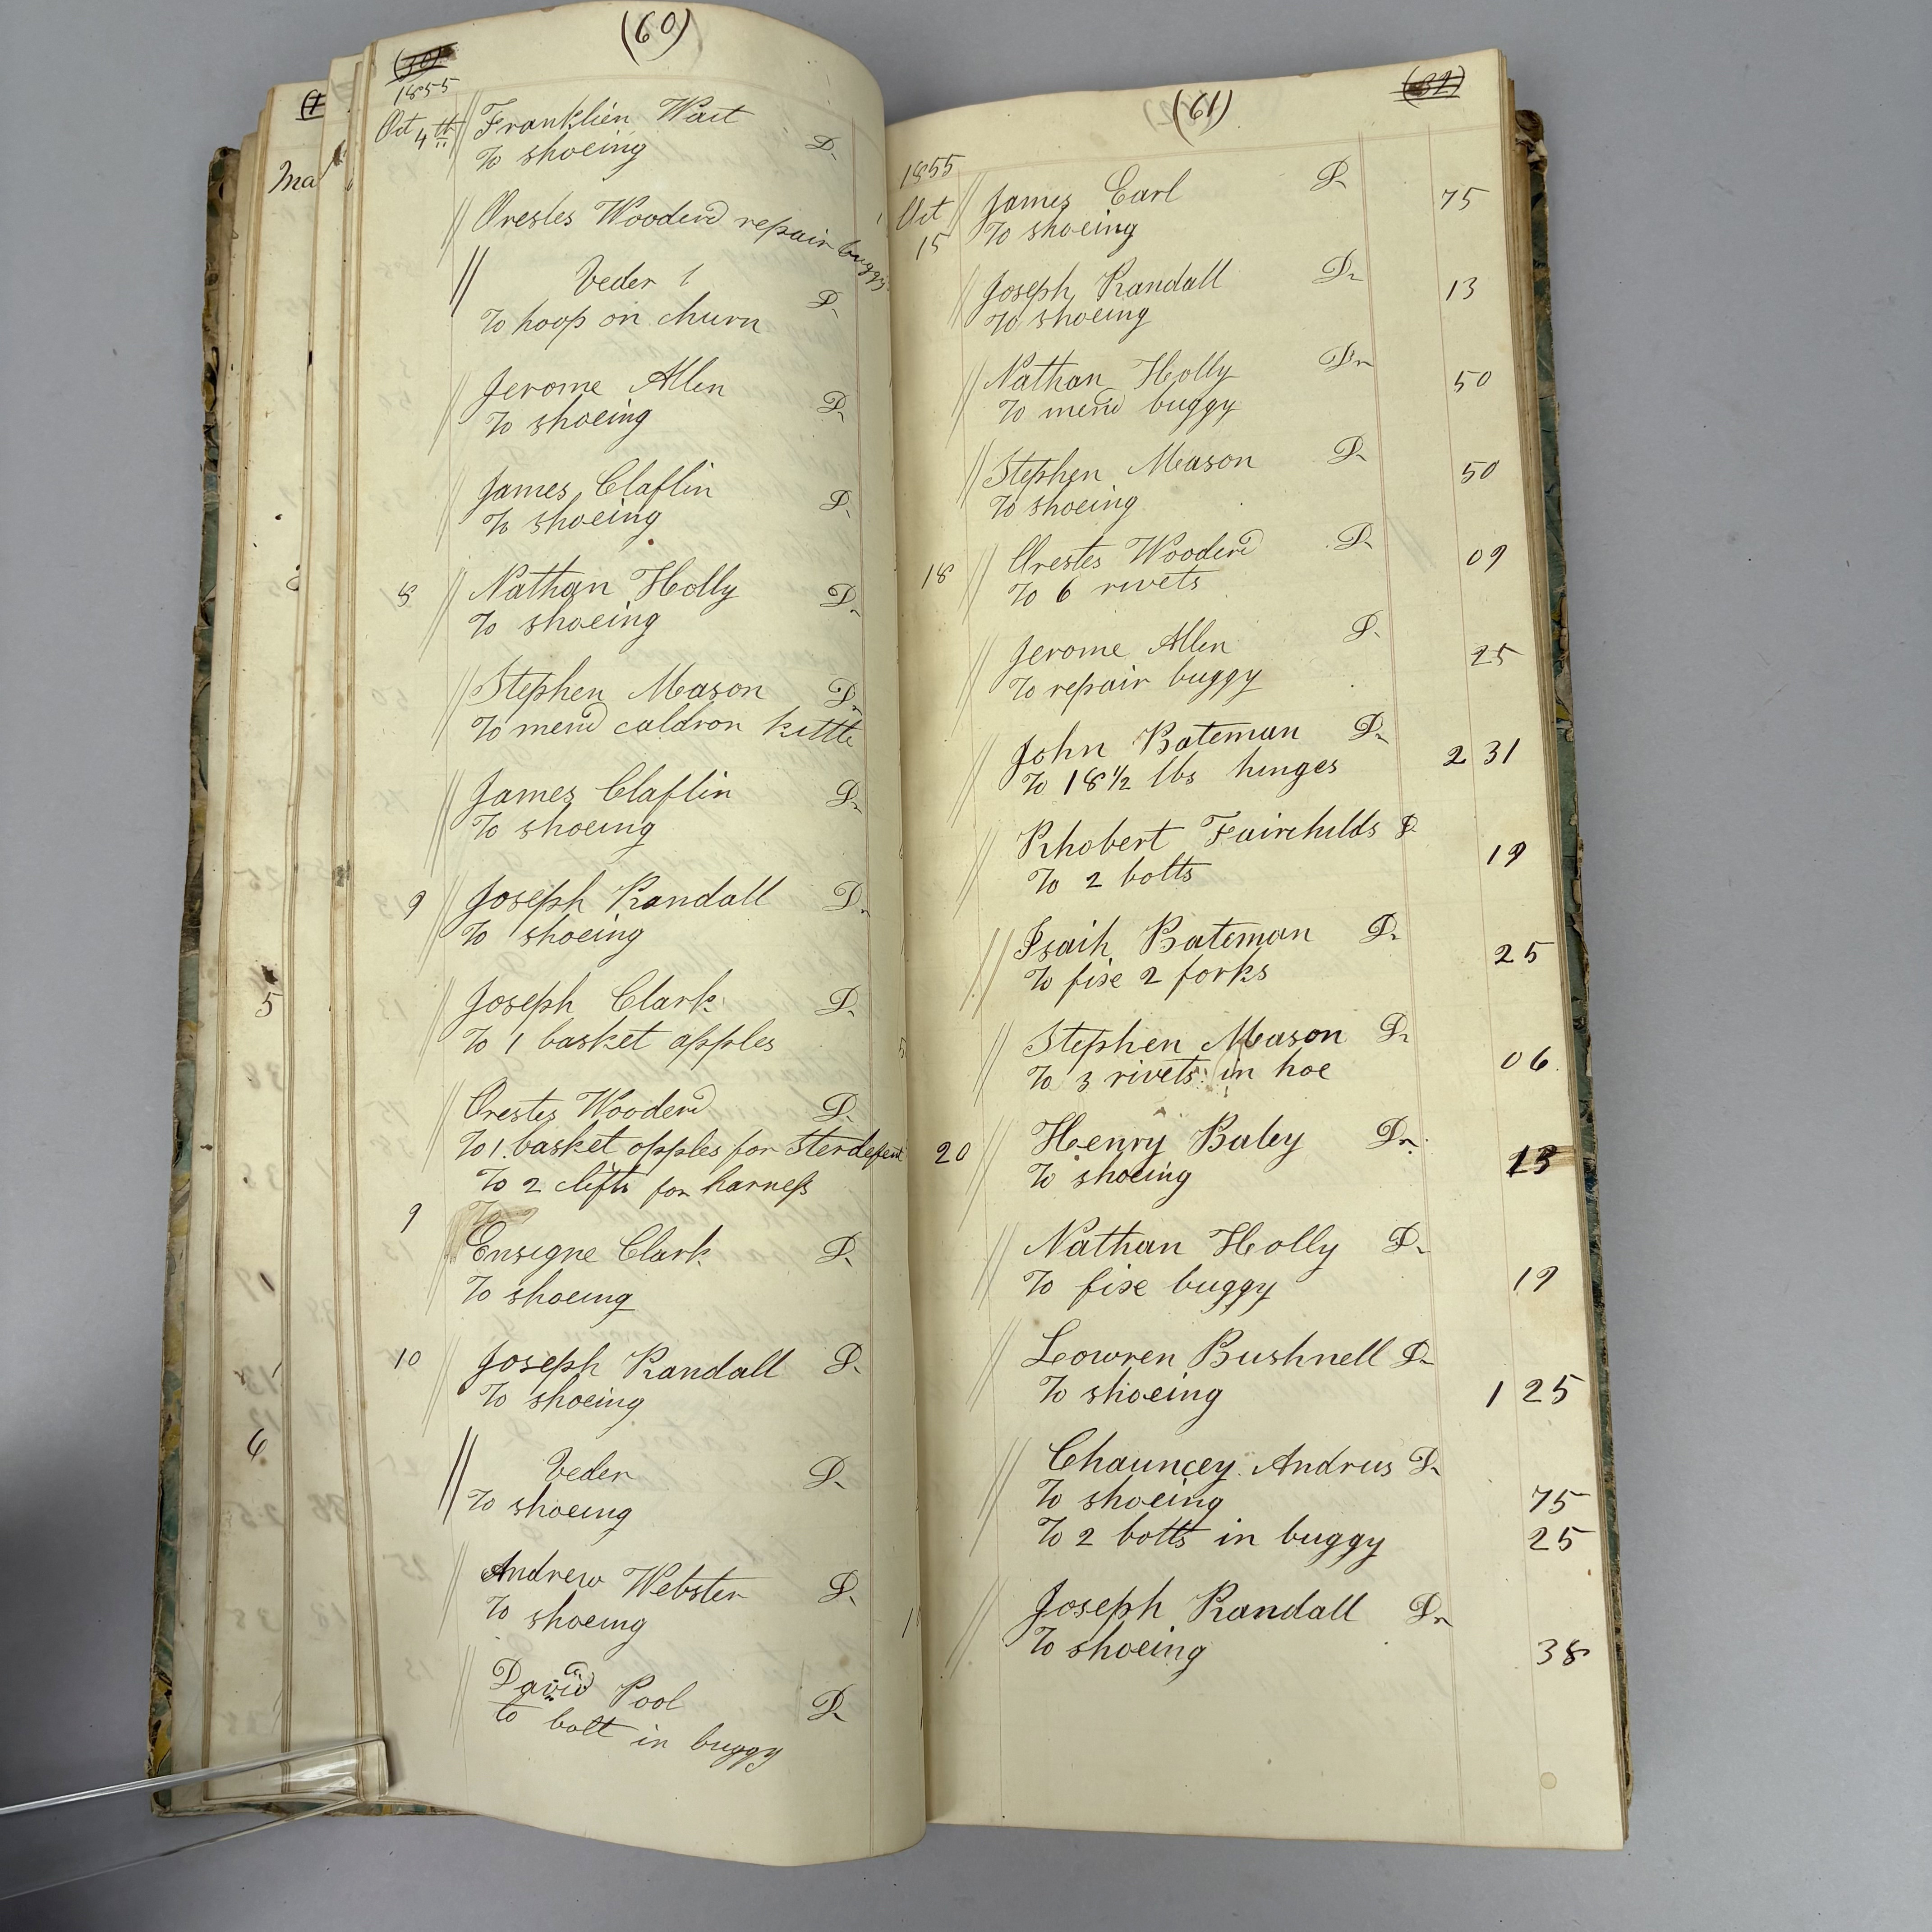 (60)
1855
Oct 4th // Franklien Wait
To shoeing D.
// Orestes Wooderd repair buggy
// Veder 1
To hoop on churn D.
// Jerome Allen
To shoeing D.
// James Claflin
To shoeing D.
8 // Nathan Holly D.
To shoeing
// Stephen Mason D.
To mend caldron kittle
// James Claflin D.
To shoeing
9 // Joseph Randall D.
To shoeing
// Joseph Clark D.
To 1 basket apples
// Orestes Wooderd D.
To 1 basket apples for
To 2 clifts for harness
9
// Ensigne Clark D.
To shoeing
10 // Joseph Randall D.
To shoeing
// Veder D.
To shoeing
// Andrew Webster D.
To shoeing
// David Pool D.
to bolt in buggy
(61)
1855
Oct 15 // James Earl D. 75
To shoeing
// Joseph Randall Dr 13
To shoeing
// Nathan Holly Dr 50
To mend buggy
// Stephen Mason D. 50
To shoeing
18 // Orestes Wooderd D. 09
To 6 rivets
// Jerome Allen D. 25
To repair buggy
// John Bateman D. 2 31
To 18 1/2 lbs hinges
// Rhobert Fairchilds D 19
To 2 bolts
// Isaih Bateman D. 25
To fixe 2 forks
// Stephen Mason Dr 06
To 3 rivets in hoe
20 // Henry Baley Dr. 13
To shoeing
// Nathan Holly D.
To fixe buggy 19
// Lowren Bushnell D.
To shoeing 1 25
// Chauncey Andrus D.
To shoeing 75
To 2 bolts in buggy 25
// Joseph Randall Dr
To shoeing 38